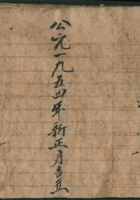 公元一九五四年新正月吉立